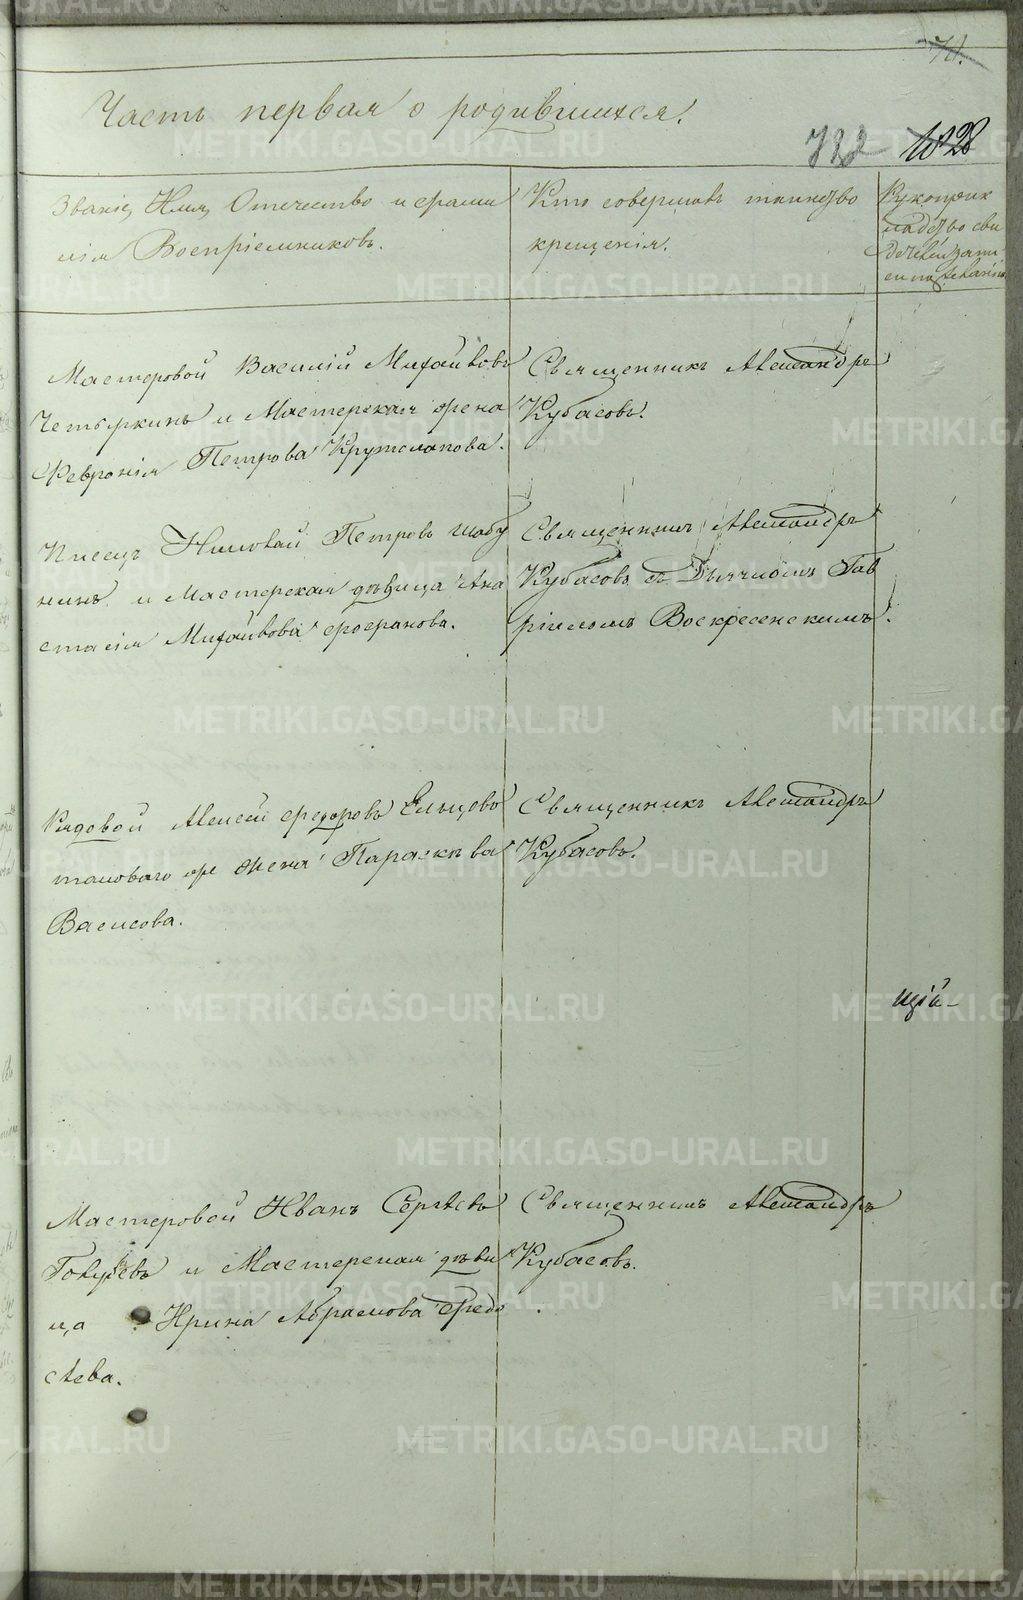 71.
Часть первая о родившихся.
722 1028
Званіе, Имя, Отечество и фами
лія Воспріемниковъ.
Кто совершалъ таинство
крещенія.
Рукоприк
ладство сви
Мастеровой Василій Михайловъ
Четыркинъ и Мастерская жена
Февронія Петрова Круглопова.
Священникъ Александръ
Кубасовъ.
Писецъ Николай Петровъ Шабу
нинъ и Мастерская дѣвица Ана
стасія Михайлова
Священникъ Александръ
Кубасовъ съ Дьячкомъ Гав
ріиломъ Воскресенскимъ.
Рядовой Алексей Федоровъ Ельцовъ
таковаго же жена Параскѣва
Власова.
Священникъ Александръ
Кубасовъ.
цій
Мастеровой Иванъ Сергѣевъ
и Мастерская дѣви
ца Ирина Абрамова Федо
сѣева.
Священникъ Александръ
Кубасовъ.
METRIKI.GASO-URAL.RU